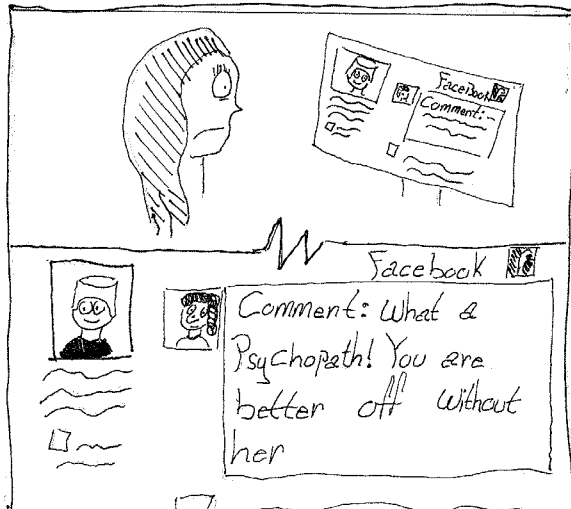 Facebook
Comment:-
Facebook
Comment: What a
Psychopath! You are
better off without
her